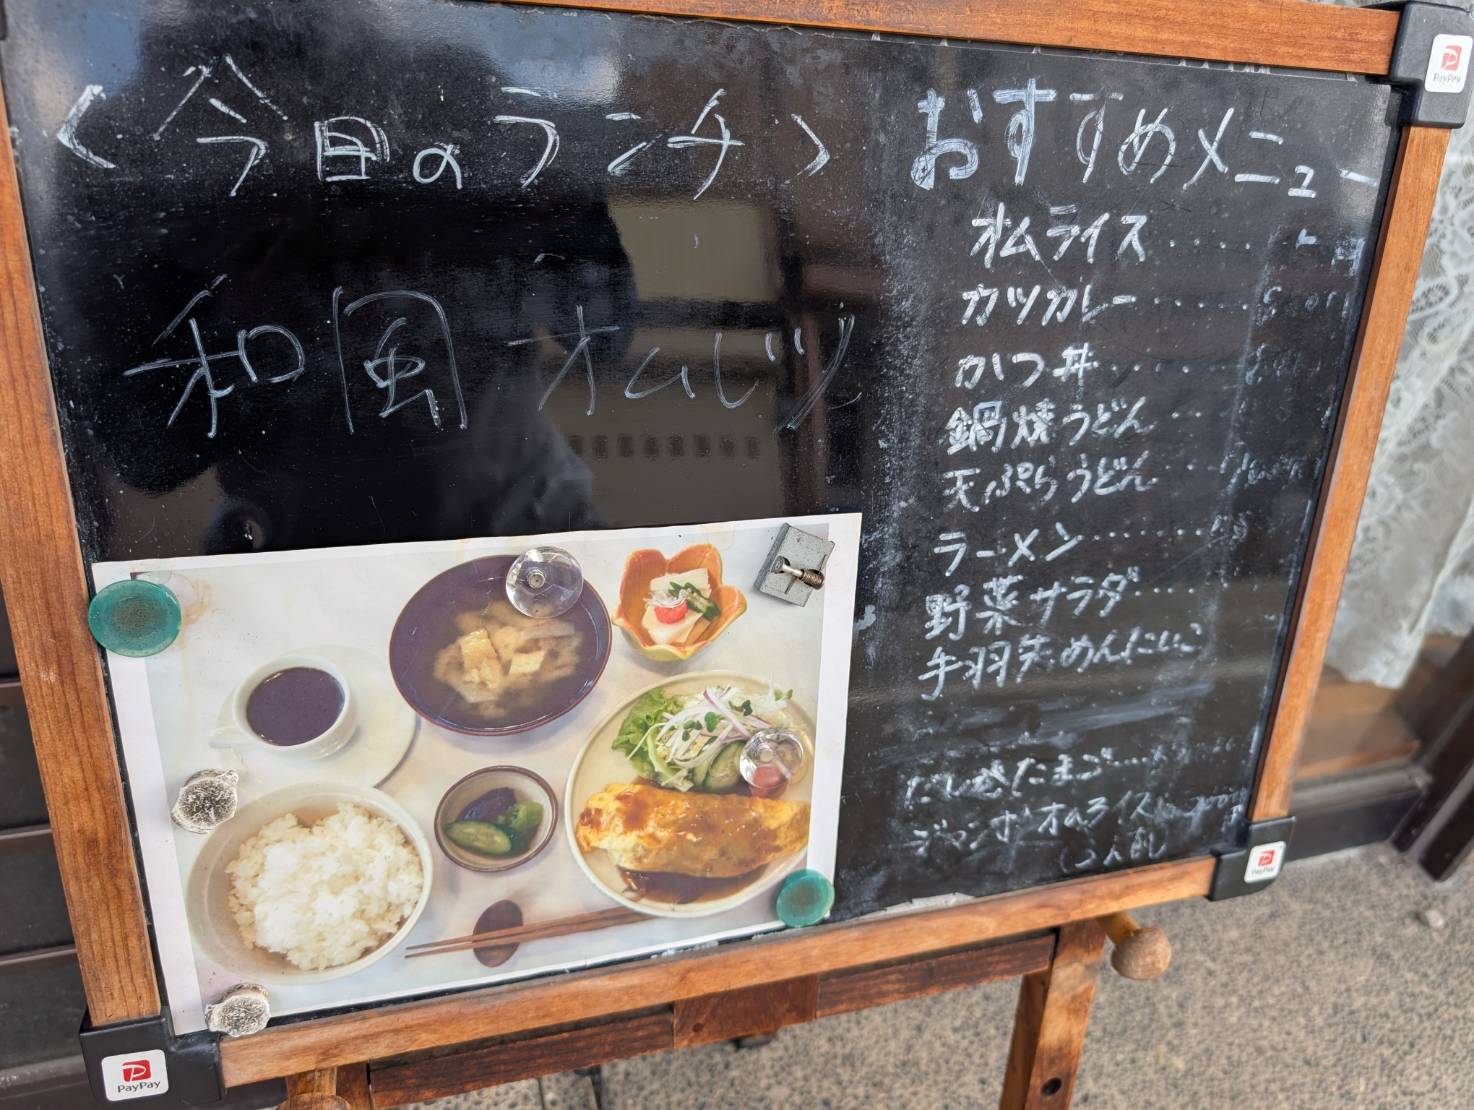 <今日のランチ>
和風オムレツ
おすすめメニュー
オムライス.....
カツカレー......
かつ丼......
鍋焼うどん...
天ぷらうどん...
ラーメン........
野菜サラダ....
手羽先めんたいこ
だし巻たまご....
ジャンボオムライス
PayPay
PayPay
PayPay